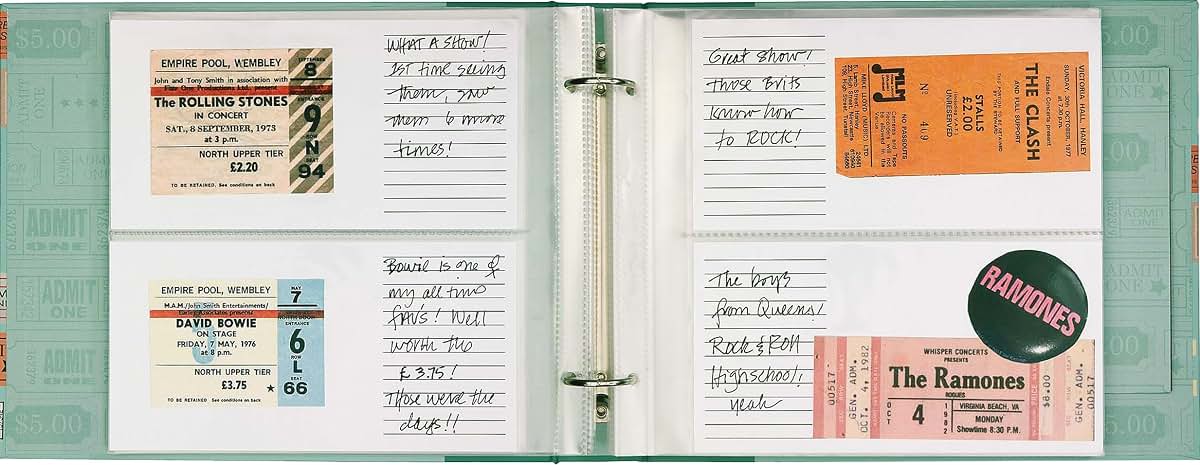 $5.00
ADMIT
ONE
ADMIT
ONE
$5.00
EMPIRE POOL, WEMBLEY
John and Tony Smith in association with
present
The ROLLING STONES
IN CONCERT
SAT., 8 SEPTEMBER, 1973
at 3 p.m.
NORTH UPPER TIER
£2.20
TO BE RETAINED. See conditions on back
SEPTEMBER
8
ENTRANCE
9
ROW
N
SEAT
94
WHAT A SHOW!
1ST time seeing
them, saw
them 6 more
times!
EMPIRE POOL, WEMBLEY
M.A.M./John Smith Entertainments/
presents
DAVID BOWIE
ON STAGE
FRIDAY, 7 MAY, 1976
at 8 p.m.
NORTH UPPER TIER
£3.75
TO BE RETAINED. See conditions on back
MAY
7
ENTRANCE
6
ROW
L
SEAT
66
Bowie is one of
my all time
FAV'S! Well
worth the
£3.75!
Those were the
days!!
Great show!
Those Brits
Know how
to ROCK!
VICTORIA HALL, HANLEY
Endale Concerts present
SUNDAY, 30th OCTOBER, 1977
at 7.30 p.m.
THE CLASH
AND FULL SUPPORT
STALLS
£2.00
UNRESERVED
THIS PORTION TO BE RETAINED
Nº 409
NO PASSOUTS
MLM
MIKE LLOYD (MUSIC) LTD
The boys
from Queens!
Rock & Roll
Highschool!
yeah
RAMONES
00517
GEN. ADM.
OCT. 4, 1982
WHISPER CONCERTS
PRESENTS
The Ramones
ROGUES
VIRGINIA BEACH, VA
MONDAY
Showtime 8:30 P.M.
OCT
4
1982
$8.00
GEN. ADM.
00517
ADMIT
ONE